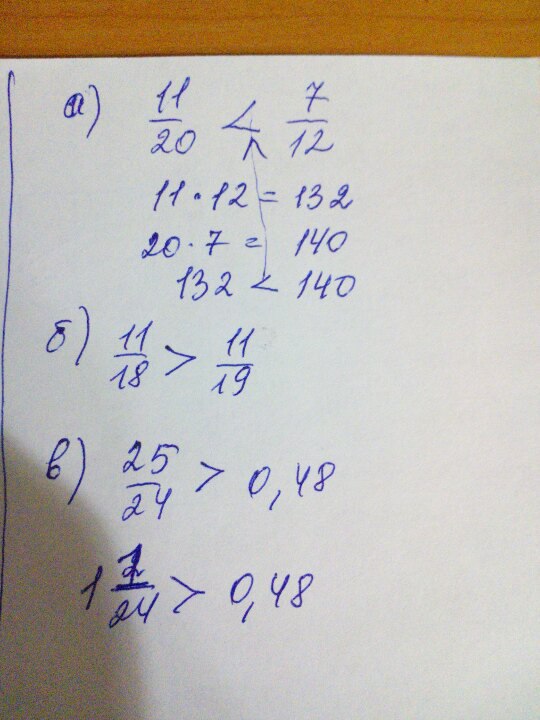 а) 11/20 < 7/12
11 · 12 = 132
20 · 7 = 140
132 < 140
б) 11/18 > 11/19
в) 25/24 > 0,48
1 1/24 > 0,48